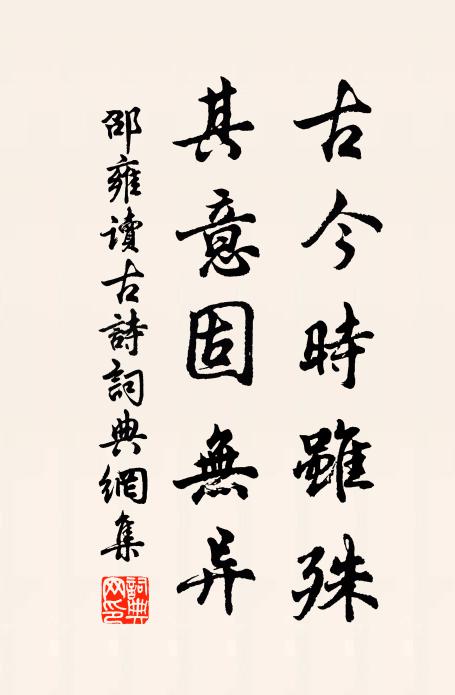 古今時雖殊
其意固無异
邵雍讀古詩詞典網集
詞典
网印